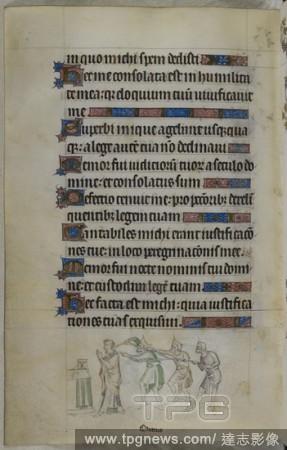 in quo michi spem dedisti
Hec me consolata est in humilita
te mea: qz eloquium tuū uiuificauit
me
Superbi inique agebant usqz qua
qz: a lege autē tua nō declinaui
Memor fui iudiciorū tuorz a seculo do
mine: et consolatus sum
Defectio tenuit me: pro pctōribz derelī
quentibz legem tuam
Cantabiles michi erant iustificacō
nes tue: in loco peregrinacōnis mee.
Memor fui nocte nominis tui domi
ne: et custodiui legē tuam
Hec facta est michi: quia iustifica
tiones tuas exquisiui.
TPG
www.tpgnews.com/ 達志影像